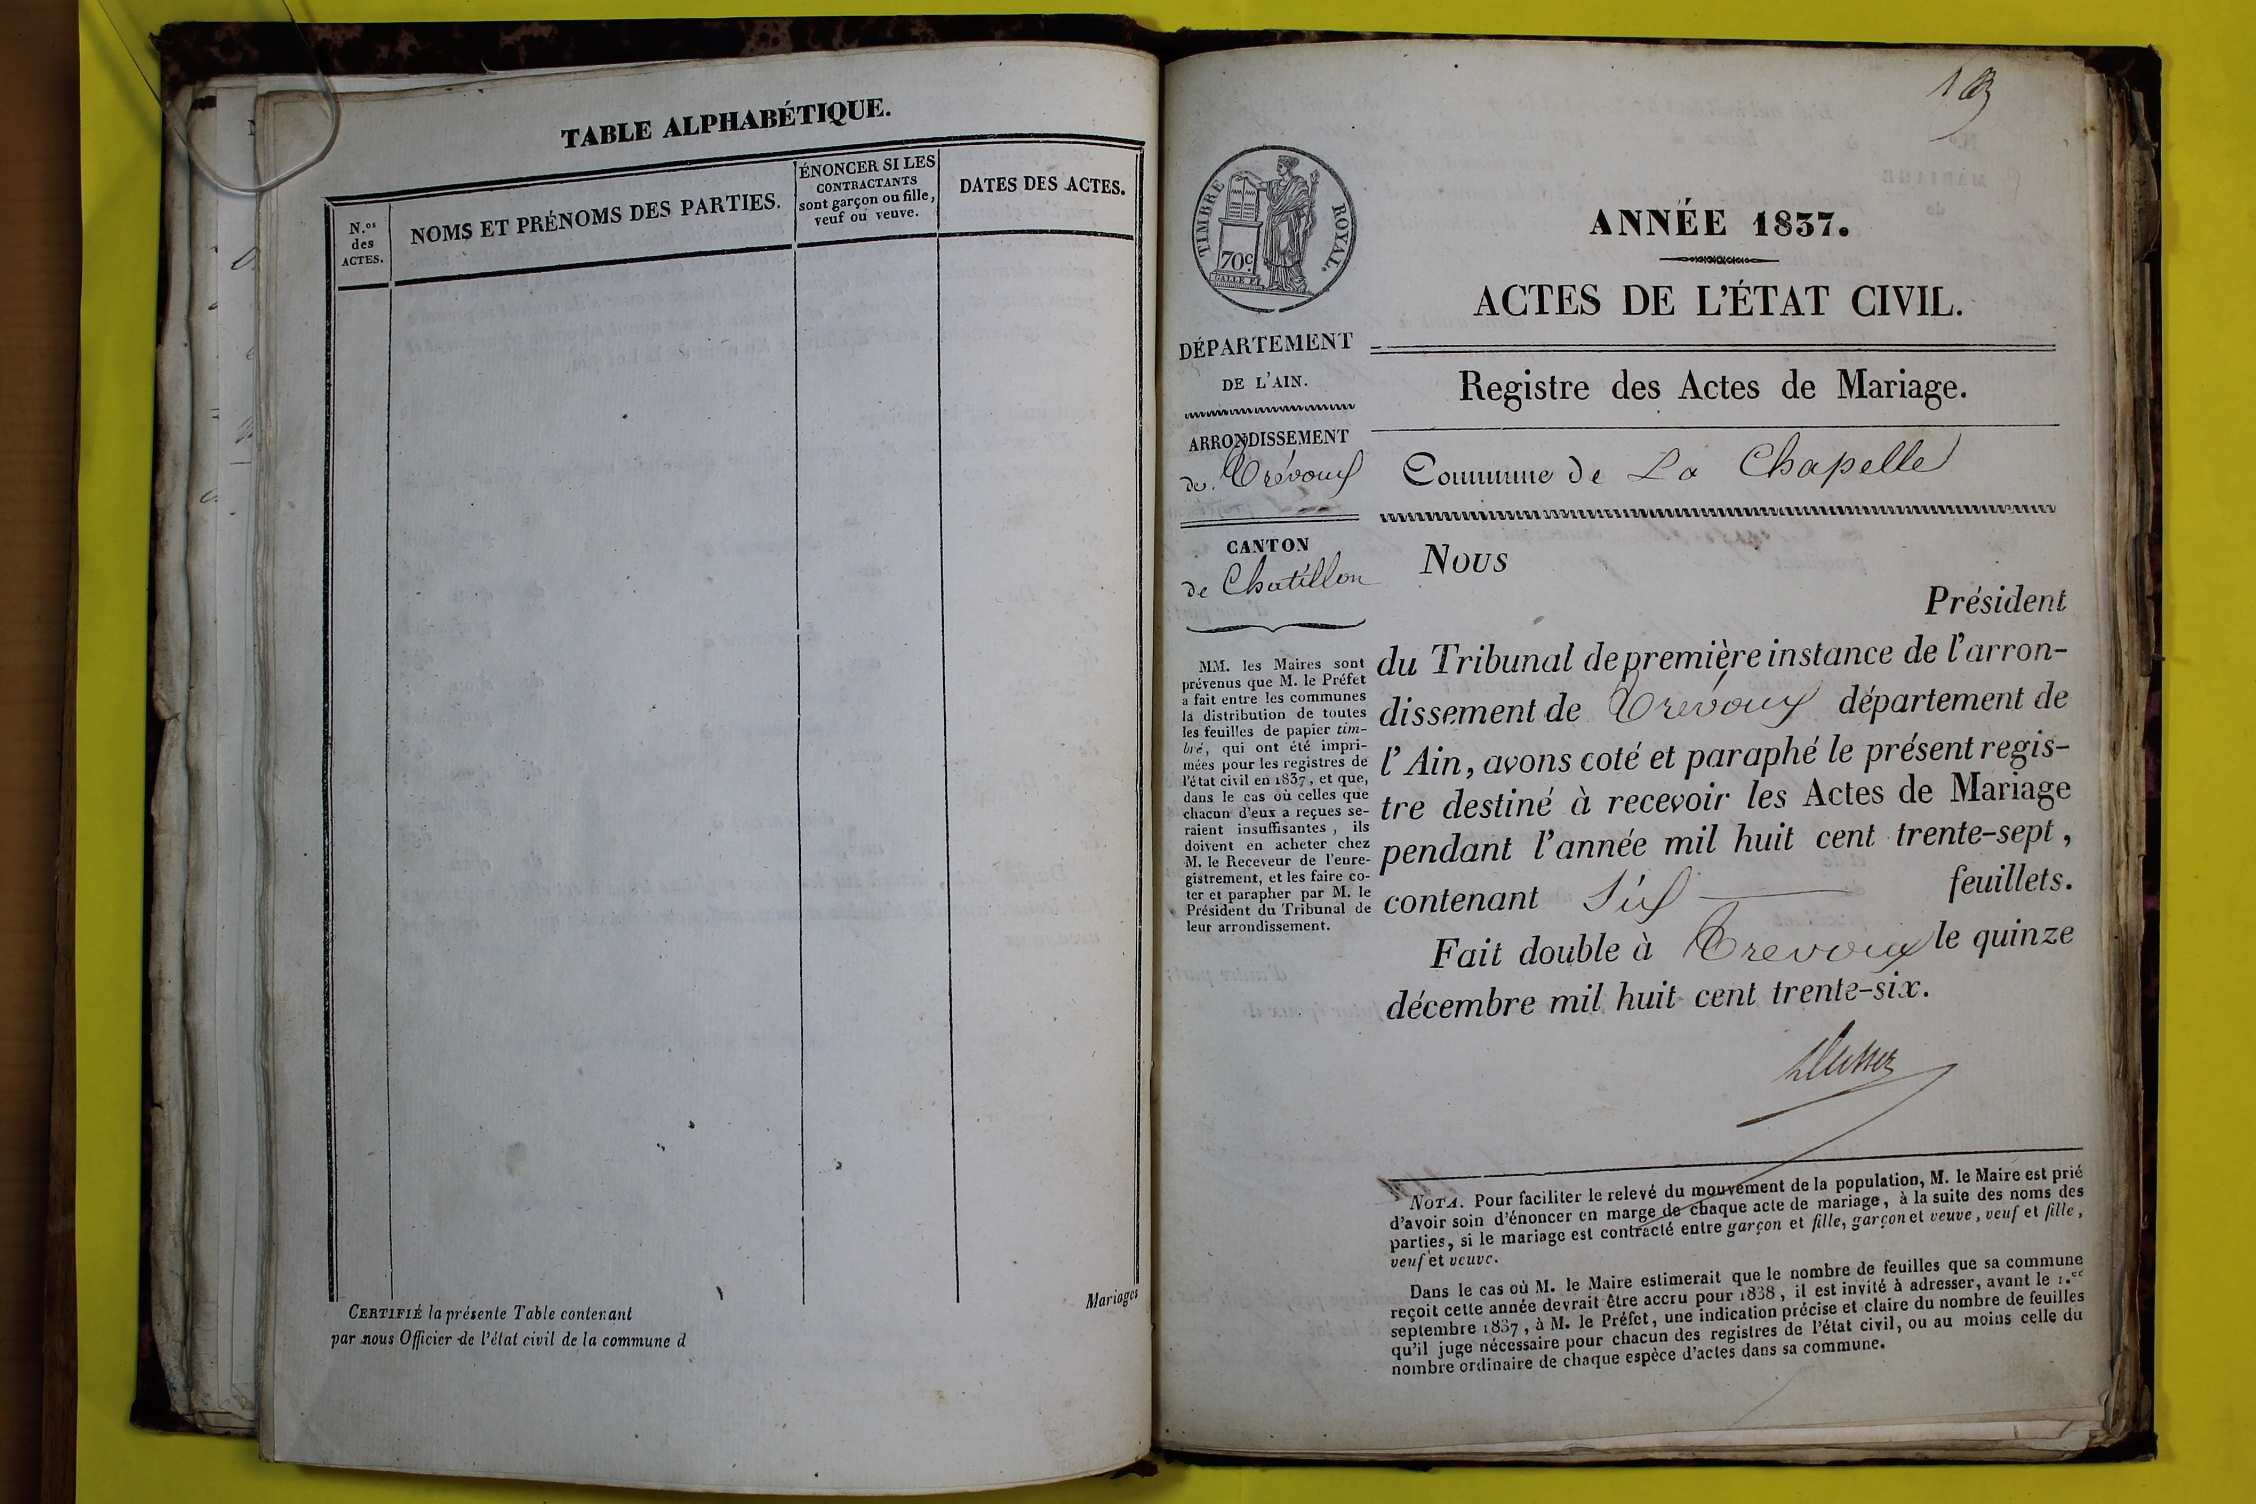 TABLE ALPHABÉTIQUE.
N.os
des
ACTES.
NOMS ET PRÉNOMS DES PARTIES.
ÉNONCER SI LES
CONTRACTANTS
sont garçon ou fille,
veuf ou veuve.
DATES DES ACTES.
Mariages
CERTIFIÉ la présente Table contenant
par nous Officier de l'état civil de la commune d
TIMBRE ROYAL.
70c
DÉPARTEMENT
DE L'AIN.
ARRONDISSEMENT
de Trévoux
CANTON
de Chatillon
MM. les Maires sont
prévenus que M. le Préfet
a fait entre les communes
la distribution de toutes
les feuilles de papier tim-
bré, qui ont été impri-
mées pour les registres de
l'état civil en 1837, et que,
dans le cas où celles que
chacun d'eux a reçues se-
raient insuffisantes, ils
doivent en acheter chez
M. le Receveur de l'enre-
gistrement, et les faire co-
ter et parapher par M. le
Président du Tribunal de
leur arrondissement.
ANNÉE 1837.
ACTES DE L'ÉTAT CIVIL.
Registre des Actes de Mariage.
Commune de La Chapelle
Nous
Président
du Tribunal de première instance de l'arron-
dissement de Trévoux département de
l'Ain, avons coté et paraphé le présent regis-
tre destiné à recevoir les Actes de Mariage
pendant l'année mil huit cent trente-sept,
contenant Six feuillets.
Fait double à Trevoux le quinze
décembre mil huit cent trente-six.
NOTA. Pour faciliter le relevé du mouvement de la population, M. le Maire est prié
d'avoir soin d'énoncer en marge de chaque acte de mariage, à la suite des noms des
parties, si le mariage est contracté entre garçon et fille, garçon et veuve, veuf et fille,
veuf et veuve.
Dans le cas où M. le Maire estimerait que le nombre de feuilles que sa commune
reçoit cette année devrait être accru pour 1838, il est invité à adresser, avant le 1.er
septembre 1837, à M. le Préfet, une indication précise et claire du nombre de feuilles
qu'il juge nécessaire pour chacun des registres de l'état civil, ou au moins celle du
nombre ordinaire de chaque espèce d'actes dans sa commune.